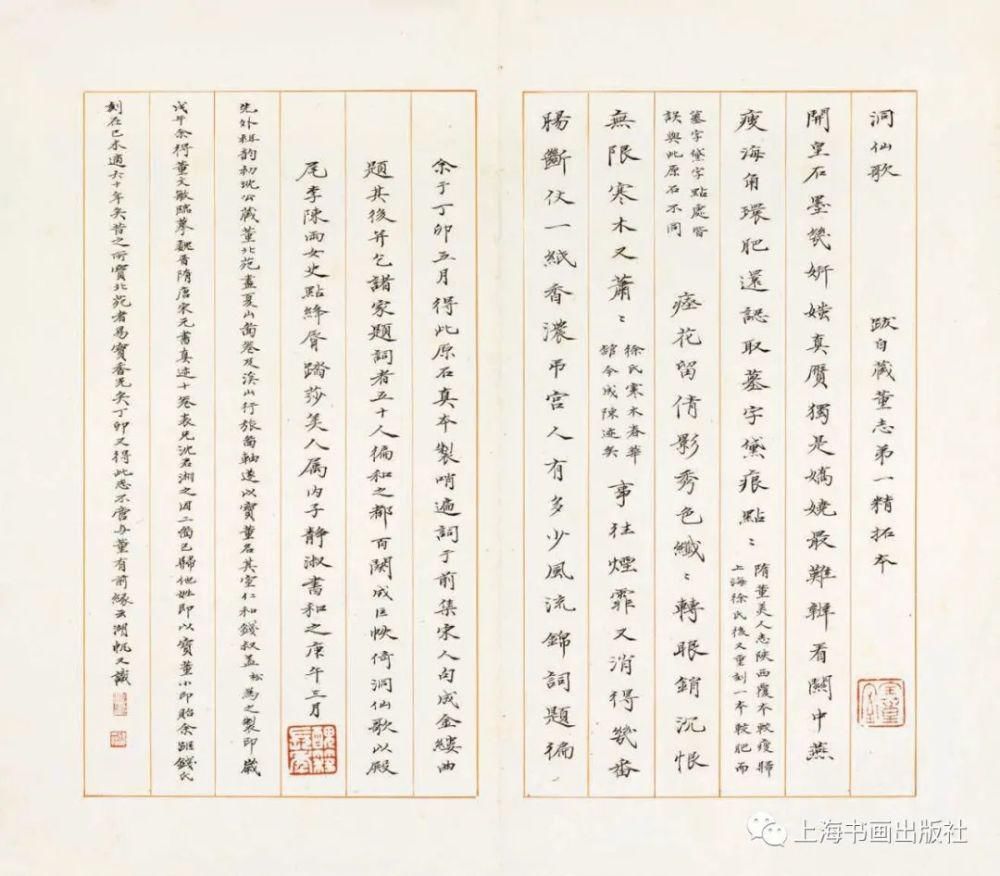 洞仙歌 跋自藏董志弟一精拓本
開皇石墨幾妍媸真贋獨是嬌嬈最難辨看關中燕
瘦海角環肥還認取墓字黛痕點〻
隋董美人志陝西覆本較瘦歸
上海徐氏後又重刻一本較肥而
墓字黛字點處皆
誤與此原石不同
瘞花留倩影秀色纖〻轉眼銷沉恨
無限寒木又蕭〻
徐氏寒木春華
館今成陳迹矣
事往煙霏又消得幾番
腸斷仗一紙香濃弔宮人有多少風流錦詞題徧
余于丁卯五月得此原石真本製哨遍詞于前集宋人句成金縷曲
題其後并乞諸家題詞者五十人徧和之都百闋成巨帙倚洞仙歌以殿
尾李陳兩女史點絳脣踏莎美人属内子靜淑書和之庚午三月
先外祖韵初沈公藏董北苑畫夏山圖卷及溪山行旅圖軸遂以寶董名其室仁和錢叔蓋松為之製印歲
戊午余得董文敏臨摹魏晋隋唐宋元書真迹十卷表兄沈君湘之因二圖已歸他姓即以寶董小印貽余距錢氏
刻在己未適六十年矣昔之所寶北苑者易寶香光矣丁卯又得此志不啻与董有前緣云湖帆又識
上海书画出版社